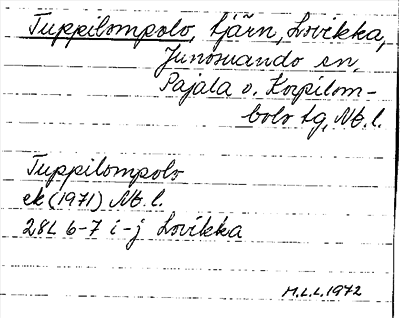 Tuppilompolo, tjärn, Lovikka,
Junosuando sn,
Pajala o. Korpilom-
bolo tg, Nb. l.
Tuppilompolo
ek (1971) Nb. l.
28L 6-7 i-j Lovikka
M.L.L. 1972